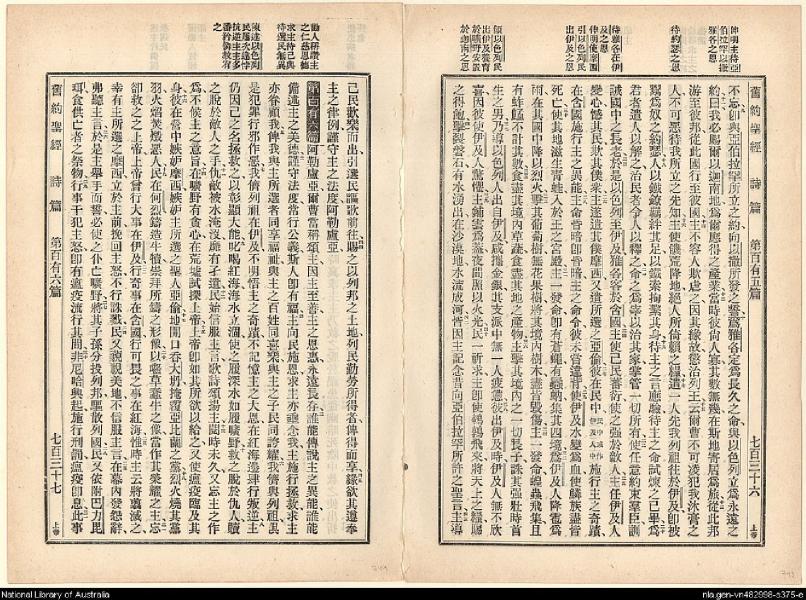 伸明主待亞
伯拉罕以撒
雅各之恩
待約瑟之恩
待雅各在伊
及之恩
伸明使摩西
引以色列民
出伊及之恩
領以色列民
出伊及養育
於曠野安置
於迦南之恩
舊約聖經 詩篇 第百有五篇 七百三十六 上卷
不忘卽與亞伯拉罕所立之約向以撒所發之誓爲雅各定爲長久之命與以色列立爲永遠之
約曰我必賜爾以迦南地爲爾應得之產業當時彼尙人寡其數無幾在斯地寄居爲旅從此邦
游至彼邦從此國行至彼國主不容人欺虐之因其緣故懲治列王云爾曹不可凌犯我沐膏之
人不可惡待我所立之先知主使饑荒降地絕人所倚賴之糧遣一人先我列祖往於伊及卽被
鬻爲奴之約瑟人以鐵鐐羈絆其足以鐵索拘繫其身待主之言應驗待主之命試煉之已畢爲
君者遣人以解之治民者令人以釋之命之爲宰以治其家掌管一切所有使任意約束羣臣訓
誡國中之長老於是以色列至伊及雅各客於含國主使己民蕃衍使之強於敵人主任伊及人
變心憾其民欺其僕衆主遂遣其僕摩西又遣所選之亞倫彼在民中施行主之奇蹟
在含國施行主之異能主命晦暗卽晦暗主之命令彼未嘗違背使伊及水變爲血使鱗族盡皆
死亡使其地滋生青蛙入於王之宮殿主一發命卽有蒼蠅有蝨蚋集其四境爲伊及人降雹爲
雨在其國中降以烈火擊其葡萄樹無花果樹將其境內樹木盡皆毀傷主一發命蝗蟲飛集且
有蚱蜢不計其數食盡其境內草蔬食盡其地之產物主擊其境內之一切長子誅其強壯時首
生之男乃導以色列人出自伊及咸攜金銀其支派中無一人疲憊彼出伊及時伊及人無不欣
喜因彼使伊及人驚懼主鋪雲爲蓋夜間照以火光民一祈求主卽使鵪鶉飛來將天上之糧賜
之得飽擊裂磐石有水湧出在沙漠地水流成河皆因主記念昔向亞伯拉罕所許之聖言主導
勸人稱讚主
之仁慈恩德
求主待己與
待選民無異
陳述以色列
民屢次違悖
抗逆主主多
番矜卹救宥
之
己民歡樂而出引選民謳歌前往賜之以列邦之土地列民勤勞所得者俾得而享緣欲其遵奉
主之律例謹守主之法度阿勒盧亞
第百有六篇 阿勒盧亞爾曹當稱頌主因主至善主之恩惠永遠長存誰能傳說主之異能誰能
備述主之美德謹守法度常行公義斯人卽有福主向民施恩求主亦垂念我主施行拯救求主
亦眷顧我俾我與主所選者同享福祉與主之百姓同喜樂與主之子民同誇耀我儕與列祖具
是犯罪行邪作惡我儕列祖在伊及不明悟主之奇蹟不記憶主之大恩在紅海邊肆行叛逆主
仍因己之名拯救之以彰顯大能叱喝紅海海水立涸使之履深水如履曠野救之脫於仇人贖
之脫於敵人之手仇敵被水淹沒靡有孑遺民始信服主言歌詩頌揚主閱時未久又忘主之作
爲不候主之意旨在曠野有貪心在荒墟試探上帝上帝卽如其所欲以給之又使瘟疫臨及其
身彼在營中嫉妒摩西嫉妒主所選之聖人亞倫地開口吞大坍掩覆亞比蘭之黨烈火燒其黨
羽火焰焚燬惡人民在何烈鑄造牛犢崇拜所鑄之形像以囓草蔬牛之像當作其榮耀之主忘
卻救之之上帝上帝曾行大事在伊及行奇事在含國行可畏之事在紅海惟時主云將翦滅之
幸有主所選之摩西立於主前挽回主怒不行誅戮民又藐視美地不信服主言在幕內發怨辭
弗聽主言於是主舉手而誓必使之仆亡曠野將其子孫分投列邦驅散列國民又依附巴力毘
珥食供亡者之祭物行事干犯主怒卽有瘟疫流行其間非尼哈興起施行刑罰瘟疫卽息此事
舊約聖經 詩篇 第百有六篇 七百三十七 上卷
National Library of Australia
nla.gen-vn482998-s375-e